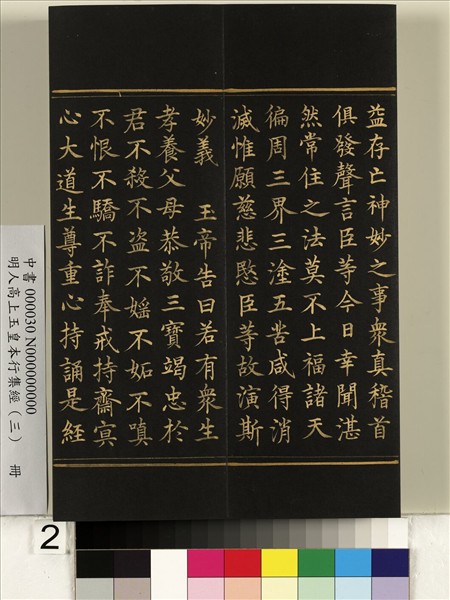 益存亡神妙之事衆真稽首
俱發聲言臣等今日幸聞湛
然常住之法莫不上福諸天
徧周三界三塗五苦咸得消
滅惟願慈悲愍臣等故演斯
妙義　玉帝告曰若有衆生
孝養父母恭敬三寶竭忠於
君不殺不盜不婬不妬不嗔
不恨不驕不詐奉戒持齋冥
心大道生尊重心持誦是經
中書 000030 N000000000
明人高上玉皇本行集經（三）　冊
2